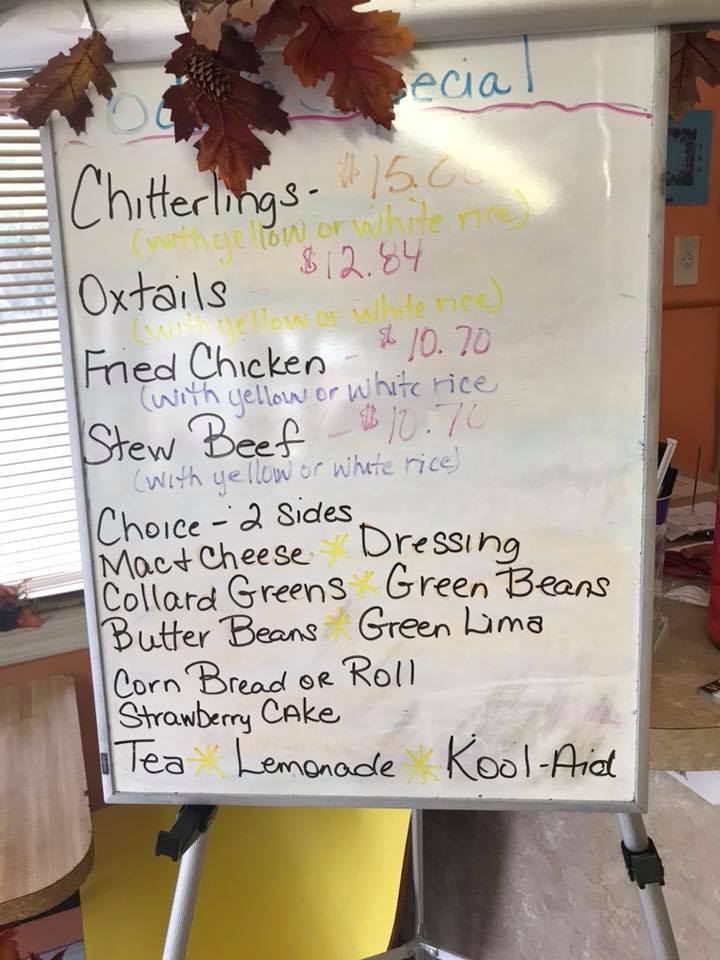 Special
Chitterlings - $15.00
(with yellow or white rice)
$12.84
Oxtails
(with yellow or white rice)
Fried Chicken - $10.70
(with yellow or white rice
Stew Beef - $10.70
(with yellow or white rice)
Choice - 2 Sides
Mac + Cheese * Dressing
Collard Greens * Green Beans
Butter Beans * Green Lima
Corn Bread or Roll
Strawberry Cake
Tea * Lemonade * Kool-Aid